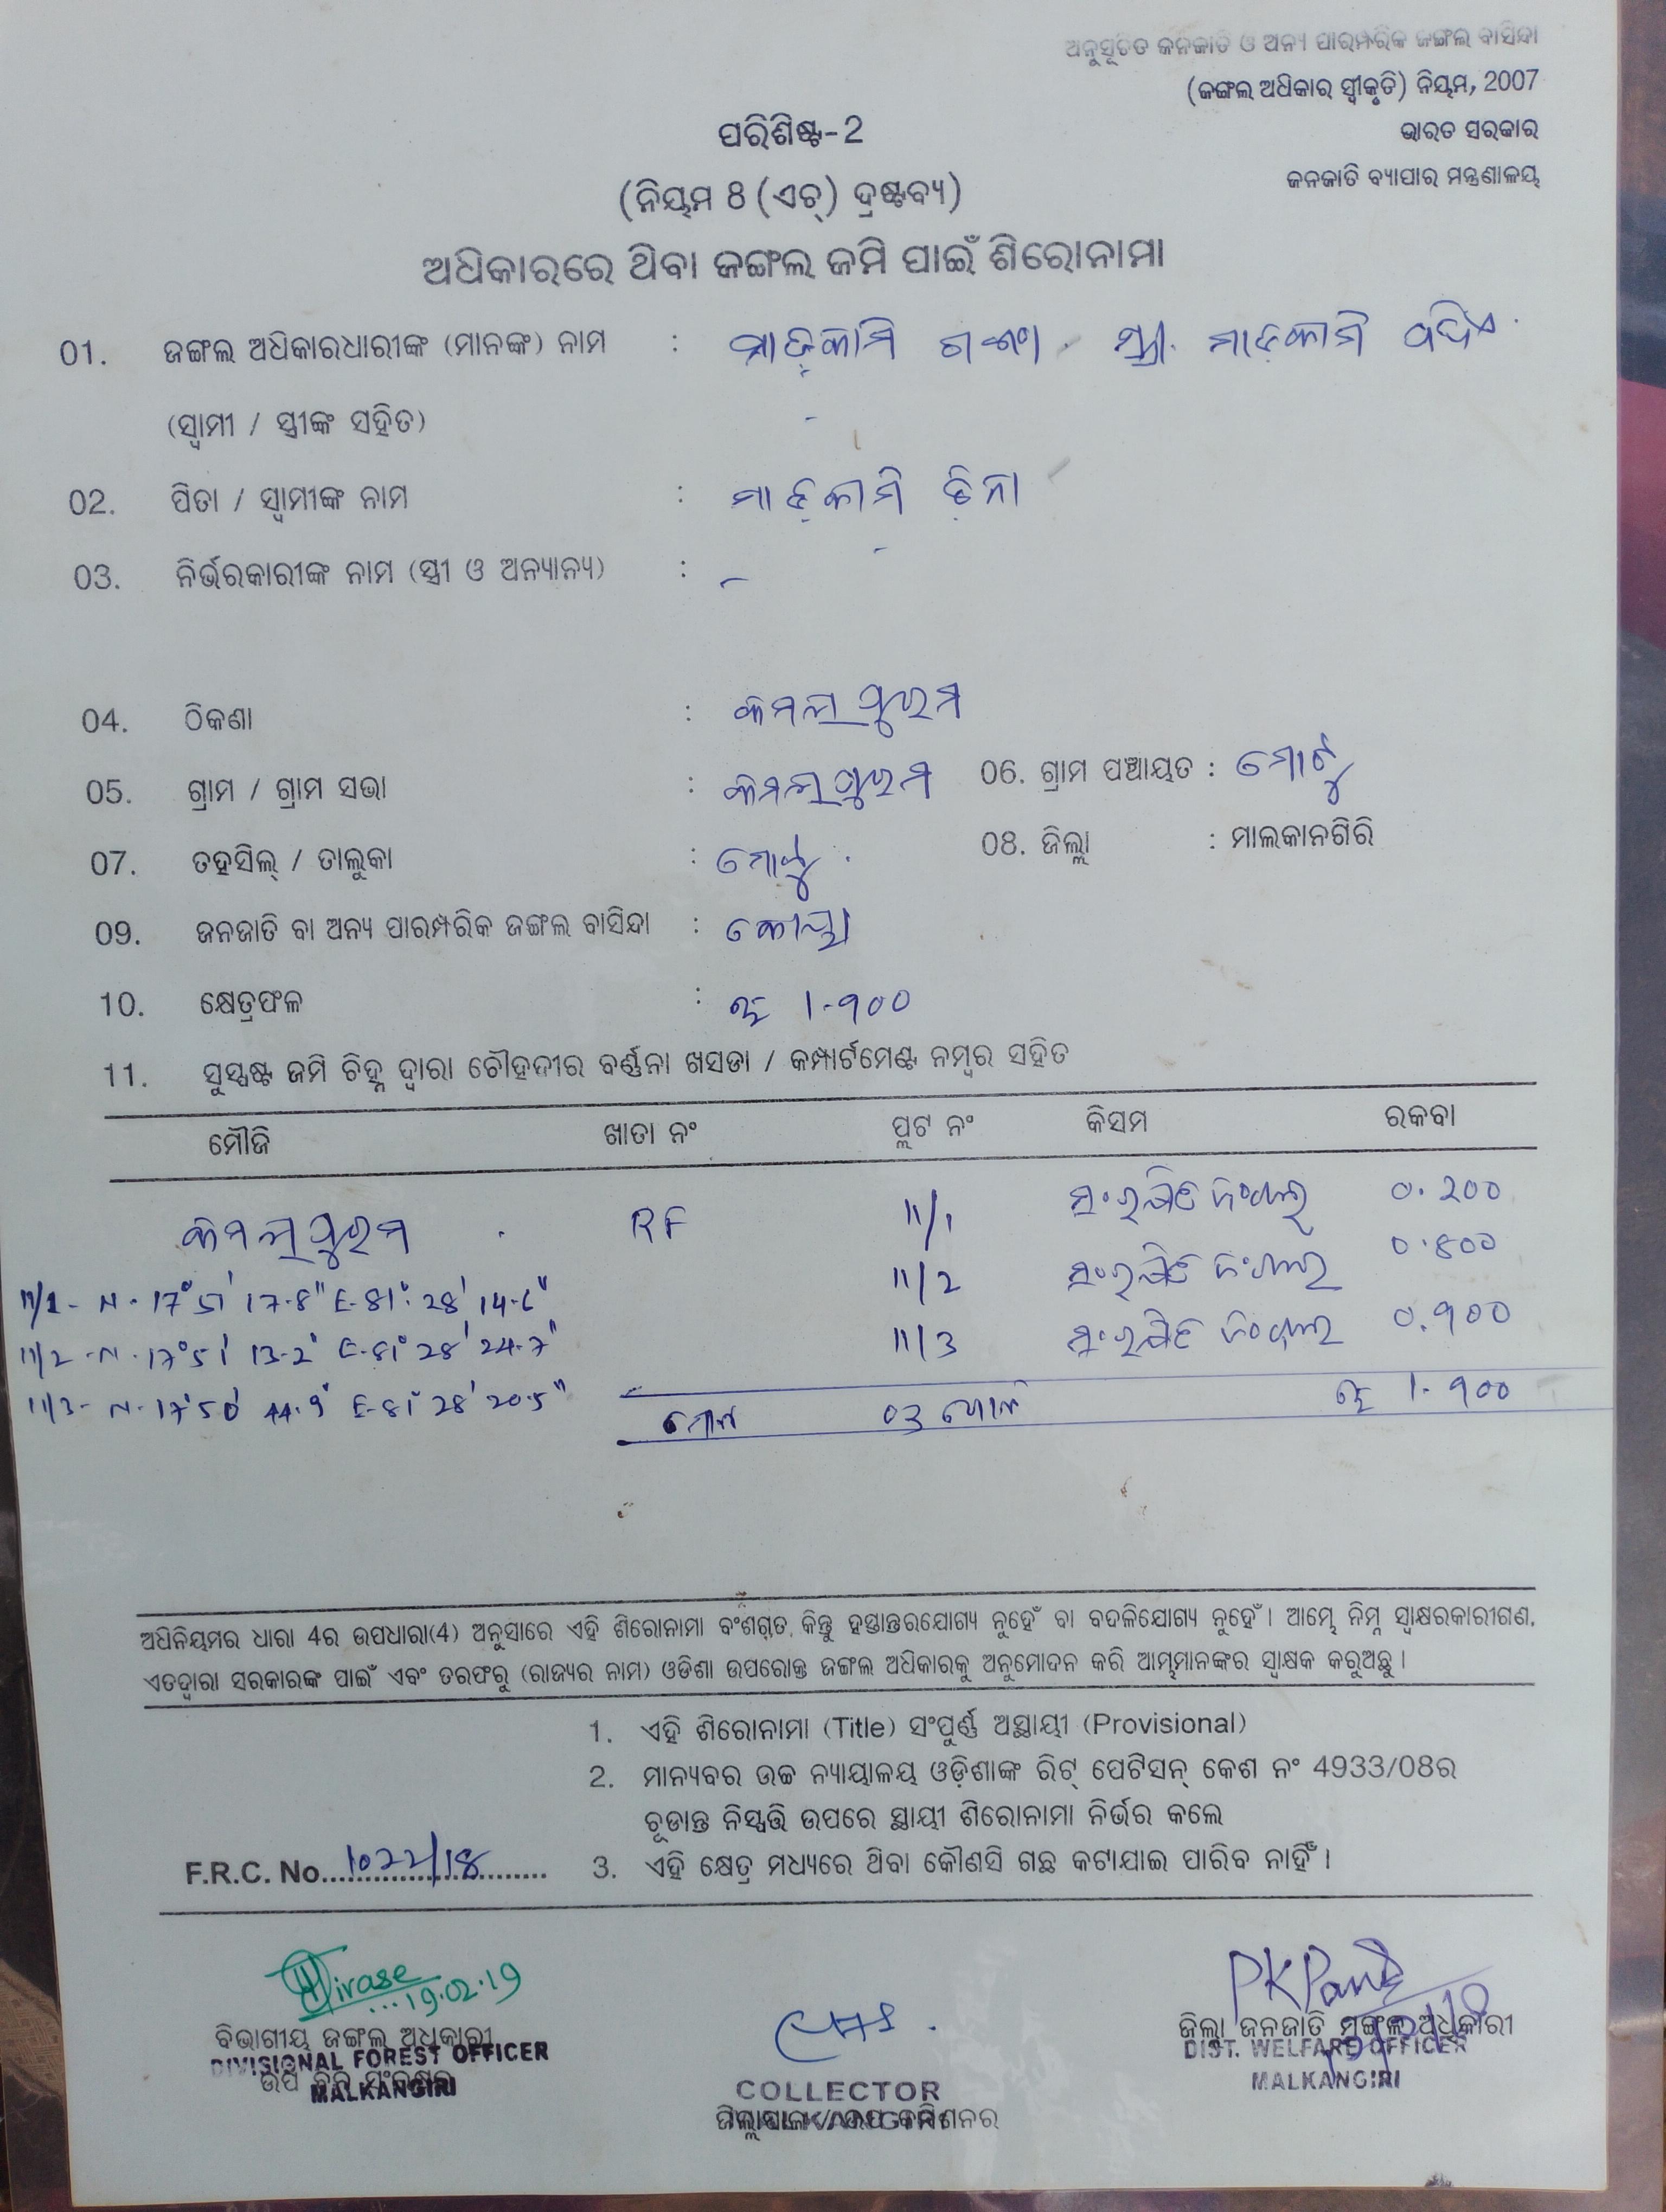 ଅନୁସୂଚିତ ଜନଜାତି ଓ ଅନ୍ୟ ପାରମ୍ପରିକ ଜଙ୍ଗଲ ବାସିନ୍ଦା
(ଜଙ୍ଗଲ ଅଧିକାର ସ୍ୱୀକୃତି) ନିୟମ, 2007
ଭାରତ ସରକାର
ଜନଜାତି ବ୍ୟାପାର ମନ୍ତ୍ରଣାଳୟ
ପରିଶିଷ୍ଟ-2
(ନିୟମ 8 (ଏଚ୍) ଦ୍ରଷ୍ଟବ୍ୟ)
ଅଧିକାରରେ ଥିବା ଜଙ୍ଗଲ ଜମି ପାଇଁ ଶିରୋନାମା
01. ଜଙ୍ଗଲ ଅଧିକାରଧାରୀଙ୍କ (ମାନଙ୍କ) ନାମ : ମାଡ଼କାମି ଗଙ୍ଗା ସ୍ତ୍ରୀ ମାଡ଼କାମି
(ସ୍ୱାମୀ / ସ୍ତ୍ରୀଙ୍କ ସହିତ)
02. ପିତା / ସ୍ୱାମୀଙ୍କ ନାମ : ମାଡ଼କାମି
03. ନିର୍ଭରକାରୀଙ୍କ ନାମ (ସ୍ତ୍ରୀ ଓ ଅନ୍ୟାନ୍ୟ) : -
04. ଠିକଣା : କମଲାପୁରମ
05. ଗ୍ରାମ / ଗ୍ରାମ ସଭା : କମଲାପୁରମ 06. ଗ୍ରାମ ପଞ୍ଚାୟତ : ମୋଟୁ
07. ତହସିଲ୍ / ତାଲୁକା : ମୋଟୁ 08. ଜିଲ୍ଲା : ମାଲକାନଗିରି
09. ଜନଜାତି ବା ଅନ୍ୟ ପାରମ୍ପରିକ ଜଙ୍ଗଲ ବାସିନ୍ଦା : କୋୟା
10. କ୍ଷେତ୍ରଫଳ : ଏ 1.900
11. ସୁସ୍ପଷ୍ଟ ଜମି ଚିହ୍ନ ଦ୍ୱାରା ଚୌହଦୀର ବର୍ଣ୍ଣନା ଖସଡା / କମ୍ପାର୍ଟମେଣ୍ଟ ନମ୍ବର ସହିତ
ମୌଜି ଖାତା ନଂ ପ୍ଲଟ ନଂ କିସମ ରକବା
କମଲାପୁରମ RF 11/1 ସଂରକ୍ଷିତ ଜଂଗଲ 0.200
11/2 ସଂରକ୍ଷିତ ଜଂଗଲ 0.800
11/3 ସଂରକ୍ଷିତ ଜଂଗଲ 0.900
11/1- N-17°51' 17.8" E-81° 28' 14.6"
11/2-N-17°51' 13.2" E-81° 28' 24.7"
11/3- N-17°50' 44.9" E-81° 28' 20.5"
ମୋଟ 03 ଏ 1.900
ଅଧିନିୟମର ଧାରା 4ର ଉପଧାରା(4) ଅନୁସାରେ ଏହି ଶିରୋନାମା ବଂଶଗ୍ତ, କିନ୍ତୁ ହସ୍ତାନ୍ତରଯୋଗ୍ୟ ନୁହେଁ ବା ବଦଳିଯୋଗ୍ୟ ନୁହେଁ। ଆମ୍ଭେ ନିମ୍ନ ସ୍ୱାକ୍ଷରକାରୀଗଣ,
ଏତଦ୍ୱାରା ସରକାରଙ୍କ ପାଇଁ ଏବଂ ତରଫରୁ (ରାଜ୍ୟର ନାମ) ଓଡିଶା ଉପରୋକ୍ତ ଜଙ୍ଗଲ ଅଧିକାରକୁ ଅନୁମୋଦନ କରି ଆମ୍ଭମାନଙ୍କର ସ୍ୱାକ୍ଷକ କରୁଅଛୁ।
1. ଏହି ଶିରୋନାମା (Title) ସଂପୂର୍ଣ୍ଣ ଅସ୍ଥାୟୀ (Provisional)
2. ମାନ୍ୟବର ଉଚ୍ଚ ନ୍ୟାୟାଳୟ ଓଡ଼ିଶାଙ୍କ ରିଟ୍ ପେଟିସନ୍ କେଶ ନଂ 4933/08ର
ଚୂଡାନ୍ତ ନିସ୍ପତ୍ତି ଉପରେ ସ୍ଥାୟୀ ଶିରୋନାମା ନିର୍ଭର କଲେ
F.R.C. No....1022/18.... 3. ଏହି କ୍ଷେତ୍ର ମଧ୍ୟରେ ଥିବା କୌଣସି ଗଛ କଟାଯାଇ ପାରିବ ନାହିଁ।
19.02.19
PKPanda
ବିଭାଗୀୟ ଜଙ୍ଗଲ ଅଧିକାରୀ
DIVISIONAL FOREST OFFICER
MALKANGIRI
COLLECTOR
ଜିଲ୍ଲାପାଳ/ଉପ କମିଶନର
ଜିଲ୍ଲା ଜନଜାତି ମଙ୍ଗଳ ଅଧିକାରୀ
DIST. WELFARE OFFICER
MALKANGIRI